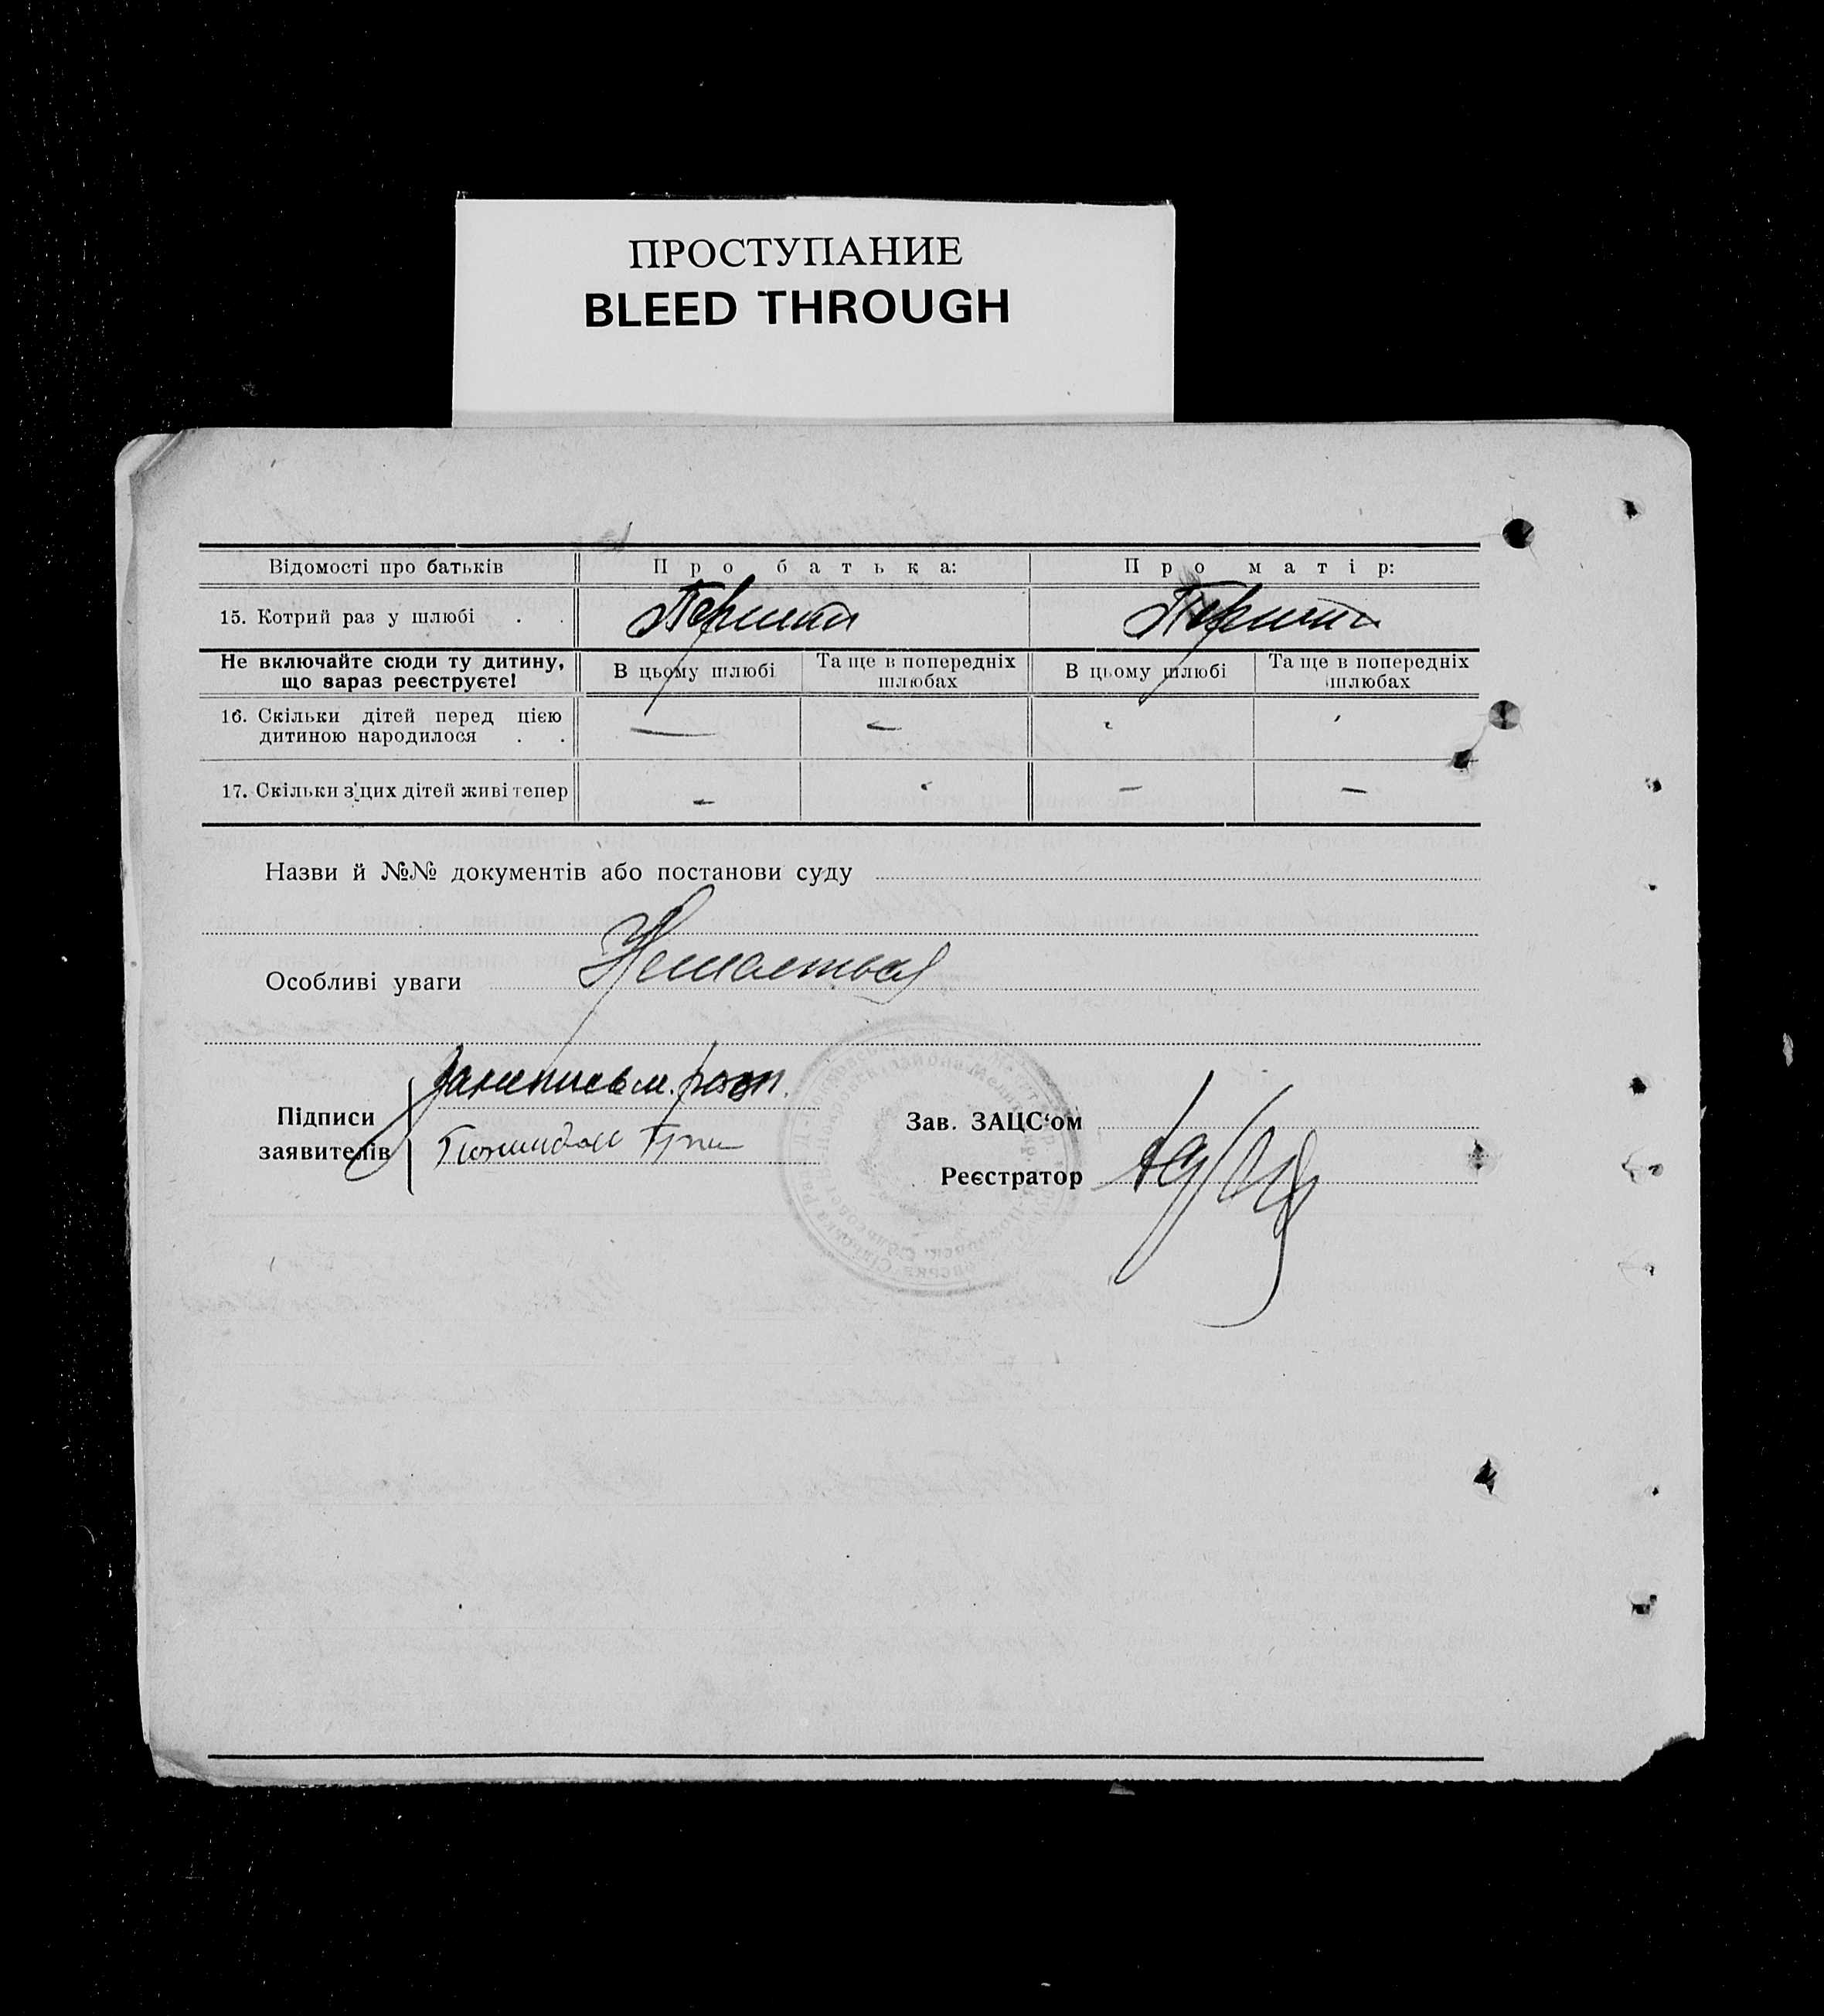 ПРОСТУПАНИЕ
BLEED THROUGH
Відомості про батьків Про батька: Про матір:
15. Котрий раз у шлюбі . . Перший Перший
Не включайте сюди ту дитину, що зараз реєструєте! В цьому шлюбі Та ще в попередніх шлюбах В цьому шлюбі Та ще в попередніх шлюбах
16. Скільки дітей перед цією
дитиною народилося . . — — — —
17. Скільки з цих дітей живі тепер — — — —
Назви й №№ документів або постанови суду
Особливі уваги
Підписи
заявителів
Зав. ЗАЦС‘ом
Реєстратор